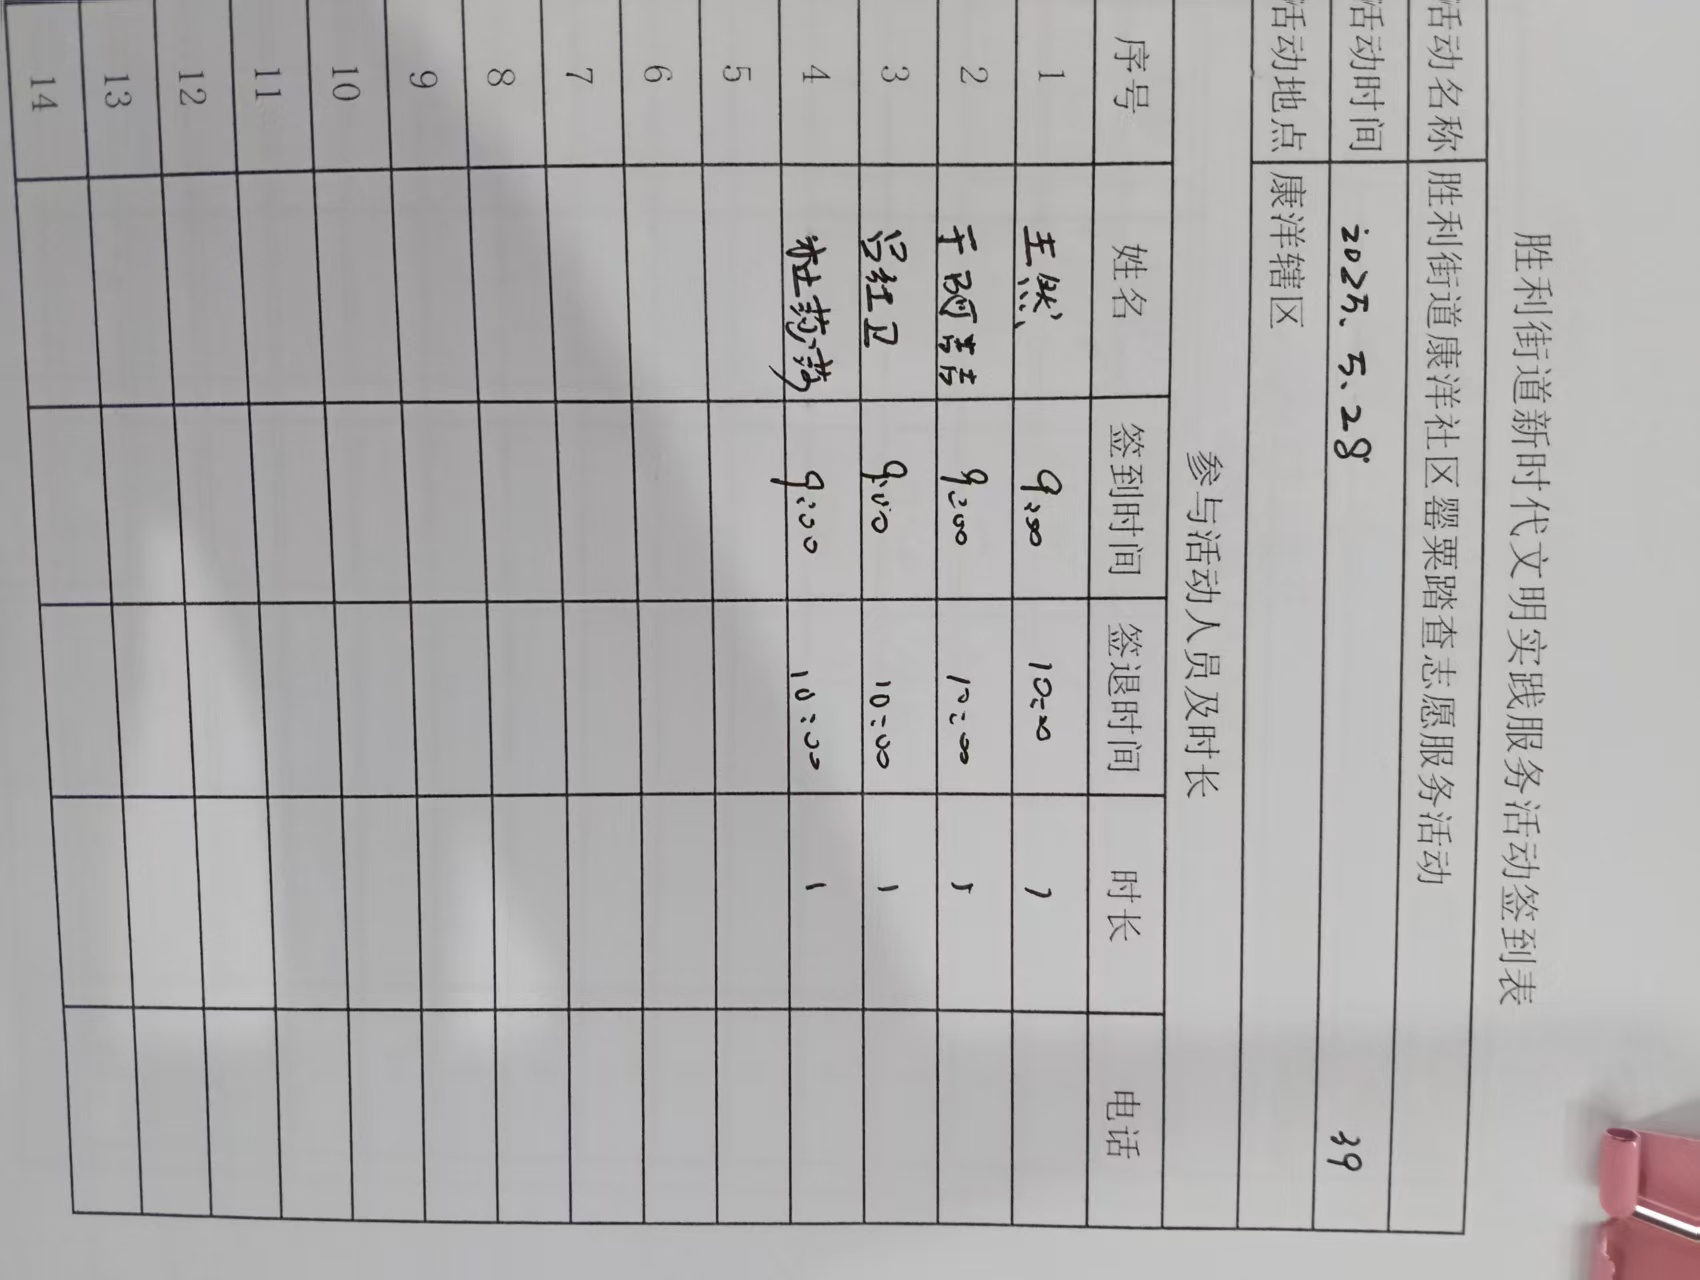 胜利街道新时代文明实践服务活动签到表
活动名称 胜利街道康洋社区罂粟踏查志愿服务活动
活动时间 2025、5、28 39
活动地点 康洋辖区
参与活动人员及时长
序号 姓名 签到时间 签退时间 时长 电话
1 王然 9:00 10:00 1
2 于 9:00 10:00 1
3 吕红卫 9:00 10:00 1
4 杜 9:00 10:00 1
5
6
7
8
9
10
11
12
13
14